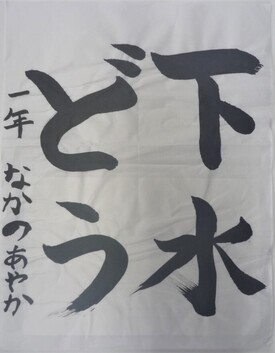 下水
どう
一年 なかのあやか